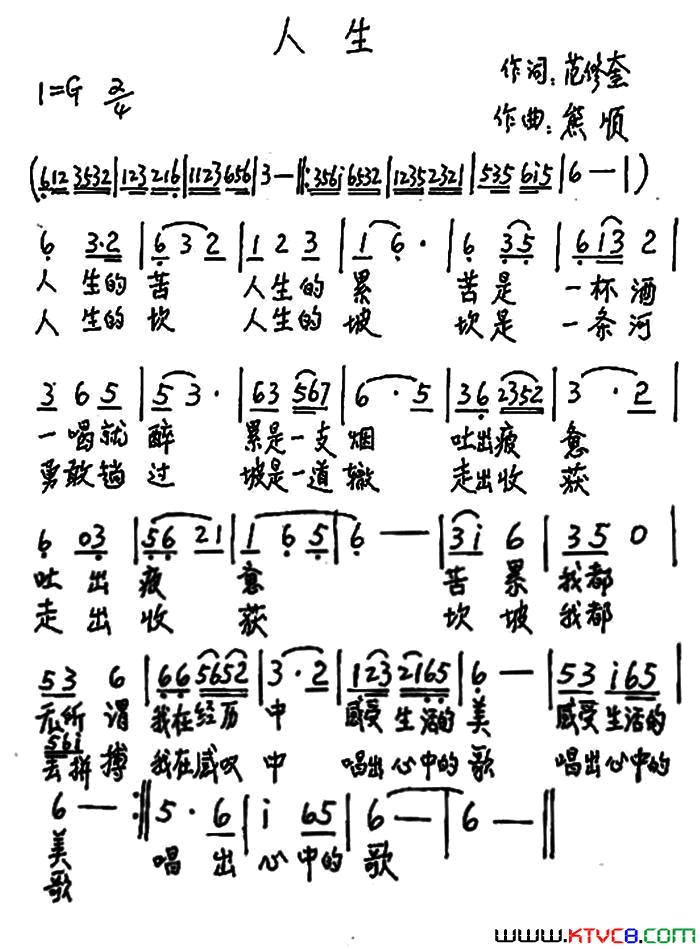 人生
作词:范修奎
1=G 2/4
作曲:熊顺
(612 3532|123 216|1123 656|3—‖:3561 6532|1235 2321|535 6i5|6—|)
6 3·2|6 3 2|1 2 3|1 6·|6 35|6 13 2|
人 生的 苦 人生的 累 苦是 一杯酒
人 生的 坎 人生的 坡 坎是 一条河
3 6 5|5 3·|63 567|6·5|36 2352|3·2|
一喝就 醉 累是一支烟 吐出疲 惫
勇敢蹚 过 坡是一道辙 走出收 获
6 03|56 21|1 6 5|6—|3i 6|35 0|
吐 出 疲 惫 苦 累 我都
走 出 收 获 坎 坡 我都
53 6|66 5652|3·2|123 2165|6—|53 i65|
无所 谓 我在经历 中 感受 生活的 美 感受 生活的
56i
去拼 搏 我在感叹 中 唱出心中的 歌 唱出心中的
6—:‖5·6|i 65|6—|6—‖
美 唱 出 心 中的 歌
歌
WWW.KTVC8.COM